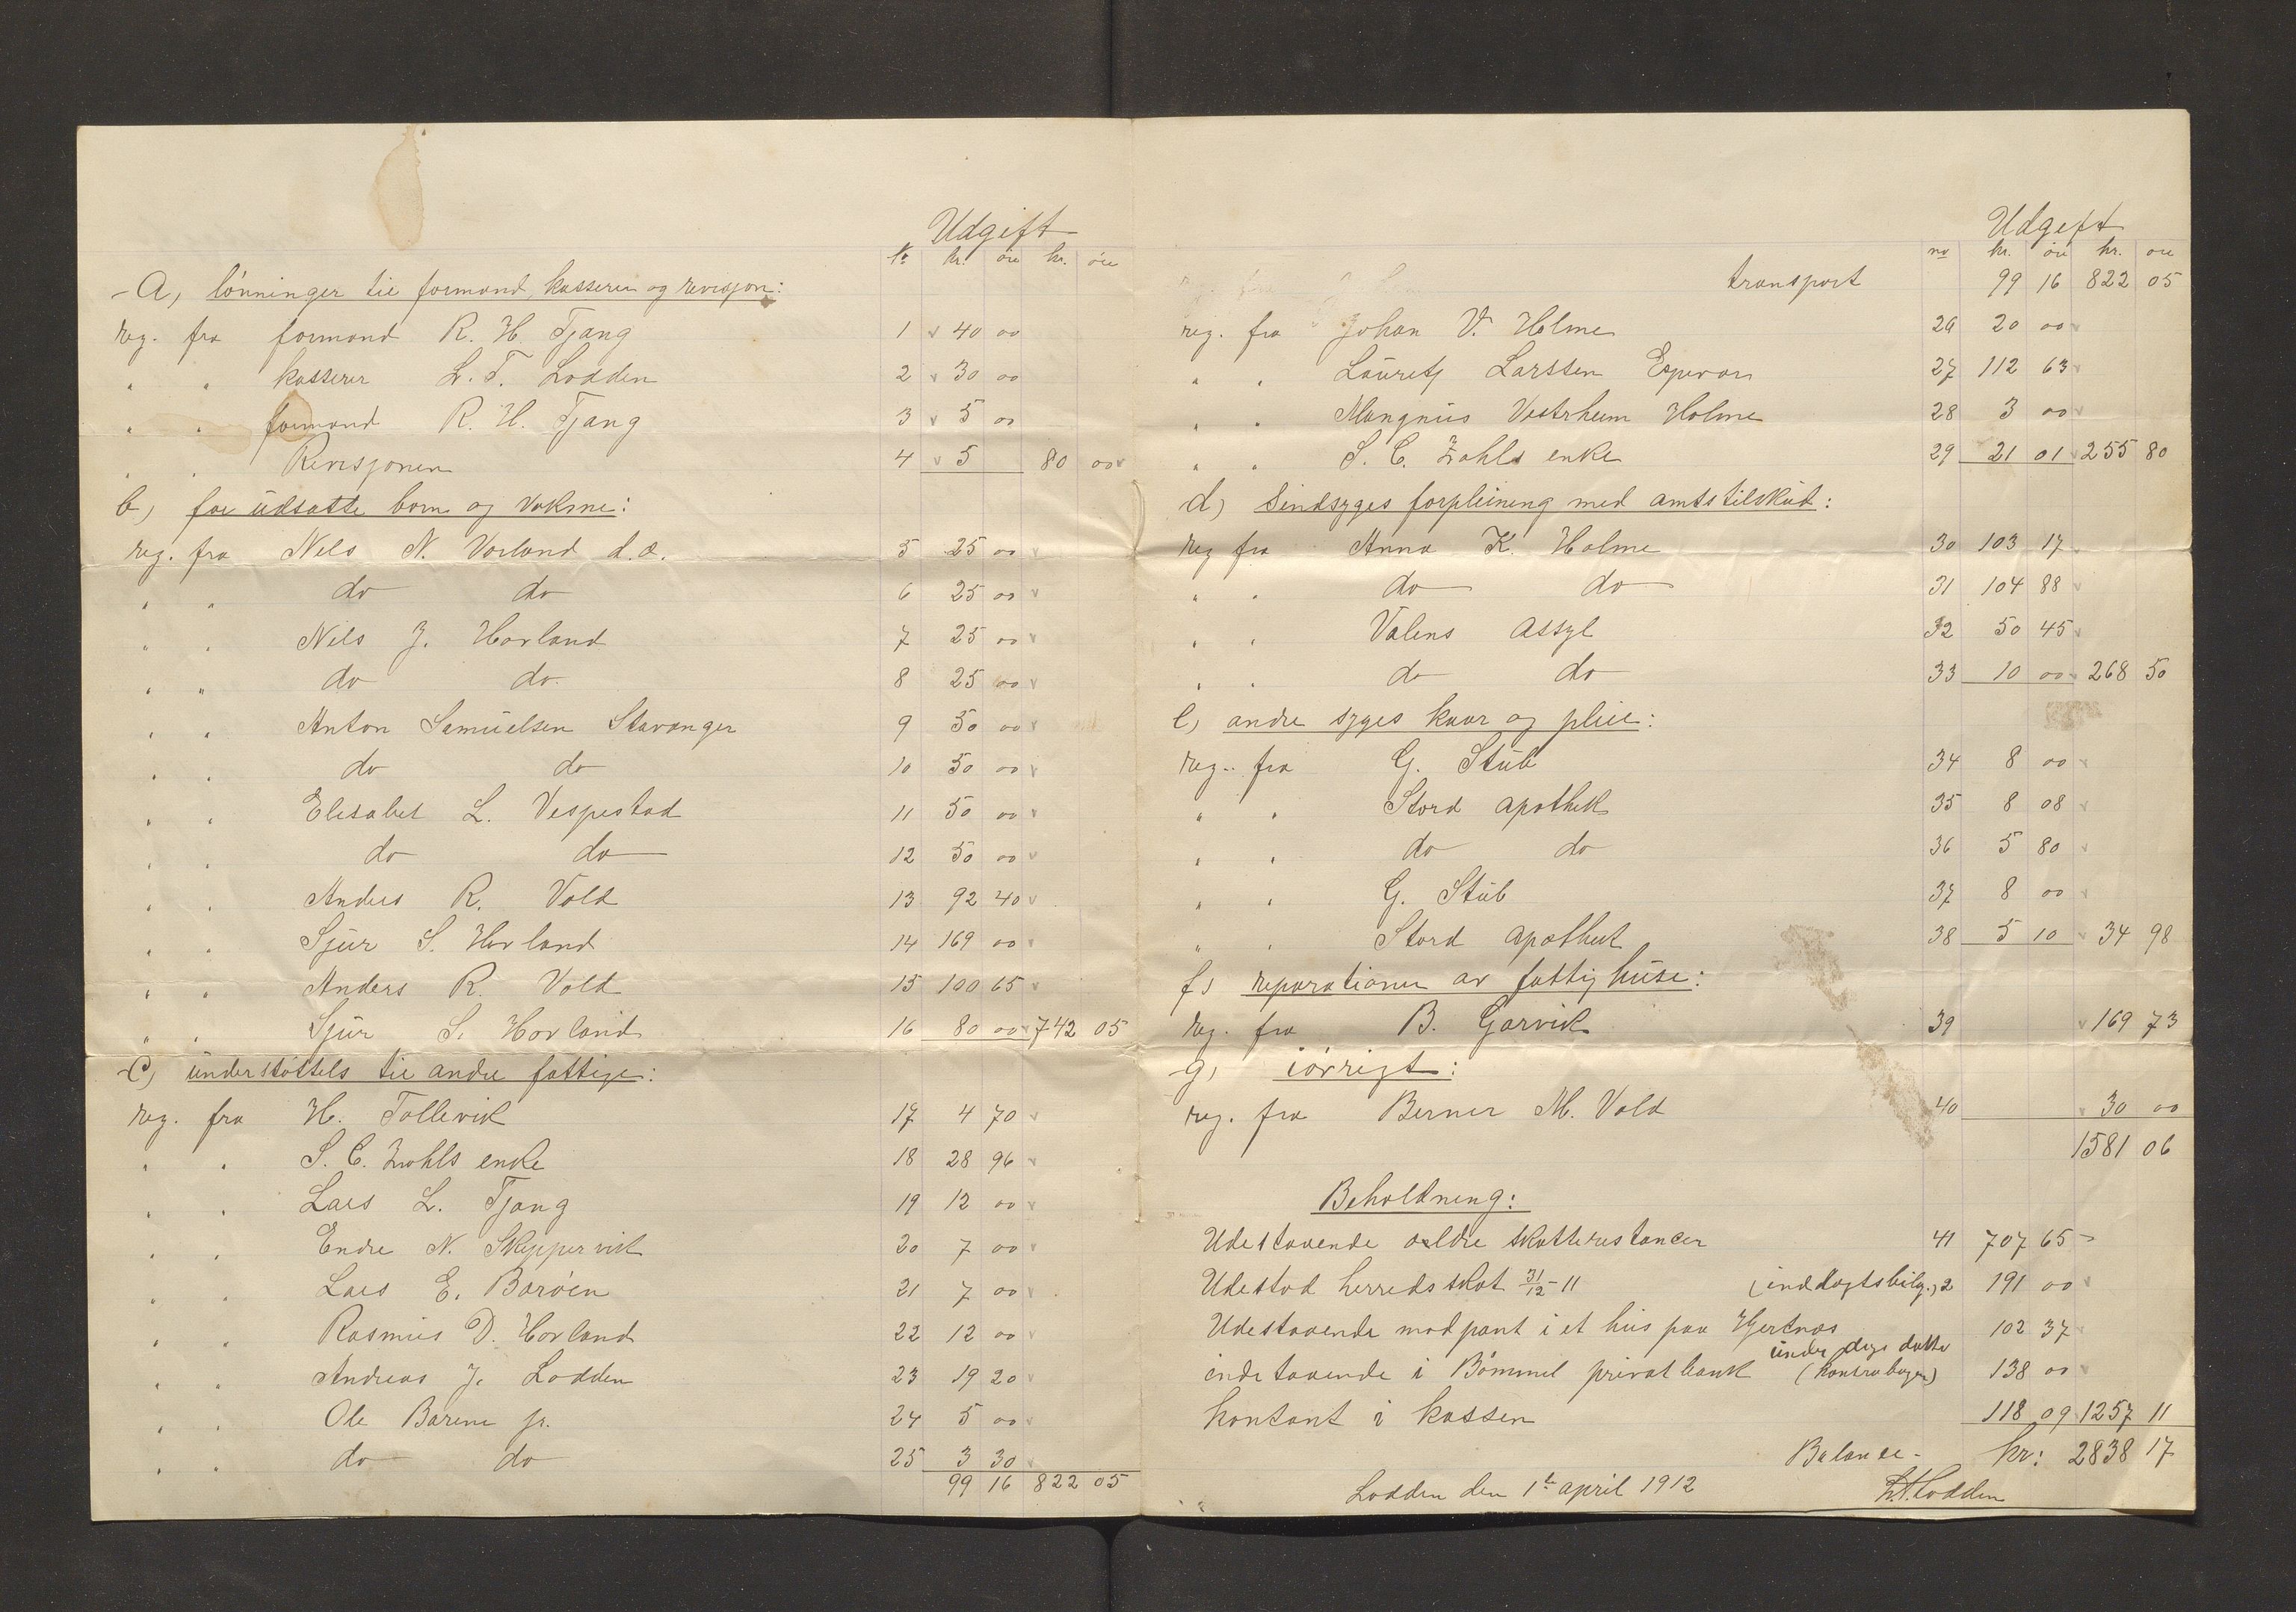 Udgift
No kr. øre kr. øre
A, lönninger til formand, kasserer og revisjon:
reg. fra formand R. H. Tjang 1 40 00
" " kasserer L. T. Lodden 2 30 00
" " formand R. H. Tjang 3 5 00
" " Revisjonen 4 5 80 00
b, for udsatte born og voksne:
reg. fra Nels N. Vorland d. æ. 5 25 00
" " do do 6 25 00
" " Nels J. Hovland 7 25 00
" " do do 8 25 00
" " Anton Samuelsen Stavanger 9 50 00
" " do do 10 50 00
" " Elisabet L. Vespestad 11 50 00
" " do do 12 50 00
" " Anders R. Vold 13 92 40
" " Sjur S. Hovland 14 169 00
" " Anders R. Vold 15 100 65
" " Sjur S. Hovland 16 80 00 742 05
C, understöttels til andre fattige:
reg. fra H. Tollevik 17 4 70
" " S. C. Zahls enke 18 28 96
" " Lars L. Tjang 19 12 00
" " Endre N. Skippervik 20 7 00
" " Lars E. Baröen 21 7 00
" " Rasmus D. Hovland 22 12 00
" " Andreas J. Lodden 23 19 20
" " Ole Barene jr. 24 5 00
" " do do 25 3 30
99 16 822 05
Udgift
no kr. øre kr. øre
transport 99 16 822 05
reg. fra Johan V. Holme 26 20 00
" " Lauretz Larssen Espevær 27 112 63
" " Mangnus Vestrheim Holme 28 3 00
" " S. C. Zahls enke 29 21 01 255 80
d) Sindsyges forpleining med amtstilskud:
reg fra Anna K. Holme 30 103 17
" " do do 31 104 88
" " Valens Assyl 32 50 45
" " do do 33 10 00 268 50
e, andre syges kuur og pleie:
reg. fra G. Stub 34 8 00
" " Stord apothek 35 8 08
" " do do 36 5 80
" " G. Stub 37 8 00
" " Stord apothek 38 5 10 34 98
f, reparationer av fattighuse:
reg. fra B. Gjarvik 39 169 73
g, iövrigt:
reg. fra Berner M. Vold 40 30 00
1581 06
Beholdning:
Udestaaende ældre skatterestancer 41 707 65
Udestod herredsskat 31/12-11 (inddagtsbilg., 2 191 00
Udestaaende mod pant i et hus paa Hjertnæs 102 37
under dags datto
indestaaende i Bömmel privatbank (Kontrabogen) 138 00
kontant i kassen 118 09 1257 11
Balance - kr: 2838 17
Lodden den 1te april 1912 L.T. Lodden